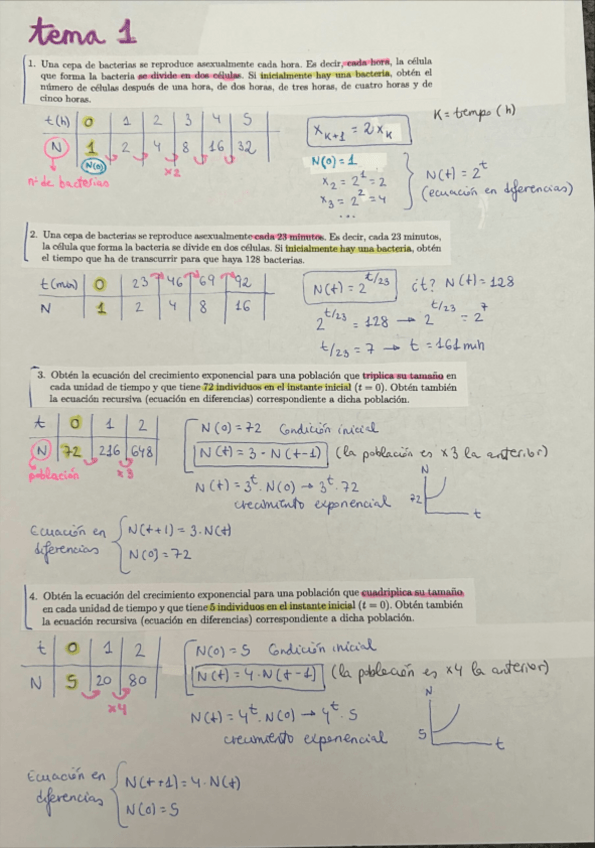 tema 1
1. Una cepa de bacterias se reproduce asexualmente cada hora. Es decir, cada hora, la célula
que forma la bacteria se divide en dos células. Si inicialmente hay una bacteria, obtén el
número de células después de una hora, de dos horas, de tres horas, de cuatro horas y de
cinco horas.
t(h) 0 1 2 3 4 5
N 1 2 4 8 16 32
N(0)
x2
nº de bacterias
x_{k+1} = 2x_k
K = tiempo (h)
N(0) = 1
x_2 = 2^1 = 2
x_3 = 2^2 = 4
...
N(t) = 2^t
(ecuación en diferencias)
2. Una cepa de bacterias se reproduce asexualmente cada 23 minutos. Es decir, cada 23 minutos,
la célula que forma la bacteria se divide en dos células. Si inicialmente hay una bacteria, obtén
el tiempo que ha de transcurrir para que haya 128 bacterias.
t(min) 0 23 46 69 92
N 1 2 4 8 16
N(t) = 2^{t/23} ¿t? N(t) = 128
2^{t/23} = 128 → 2^{t/23} = 2^7
t/23 = 7 → t = 161 min
3. Obtén la ecuación del crecimiento exponencial para una población que triplica su tamaño en
cada unidad de tiempo y que tiene 72 individuos en el instante inicial (t = 0). Obtén también
la ecuación recursiva (ecuación en diferencias) correspondiente a dicha población.
t 0 1 2
N 72 216 648
población x3
N(0) = 72 Condición inicial
N(t) = 3 · N(t-1) (la población es x3 la anterior)
N(t) = 3^t · N(0) → 3^t · 72
crecimiento exponencial
N
72
t
Ecuación en
diferencias
N(t+1) = 3·N(t)
N(0) = 72
4. Obtén la ecuación del crecimiento exponencial para una población que cuadriplica su tamaño
en cada unidad de tiempo y que tiene 5 individuos en el instante inicial (t = 0). Obtén también
la ecuación recursiva (ecuación en diferencias) correspondiente a dicha población.
t 0 1 2
N 5 20 80
x4
N(0) = 5 Condición inicial
N(t) = 4·N(t-1) (la población es x4 la anterior)
N(t) = 4^t · N(0) → 4^t · 5
crecimiento exponencial
N
5
t
Ecuación en
diferencias
N(t+1) = 4·N(t)
N(0) = 5